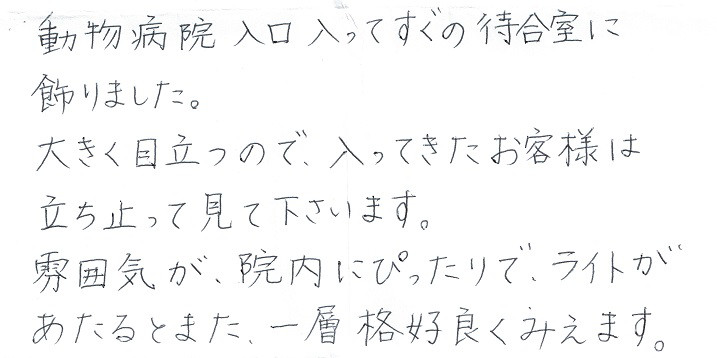 動物病院入口入ってすぐの待合室に
飾りました。
大きく目立つので、入ってきたお客様は
立ち止って見て下さいます。
雰囲気が、院内にぴったりで、ライトが
あたるとまた、一層格好良くみえます。